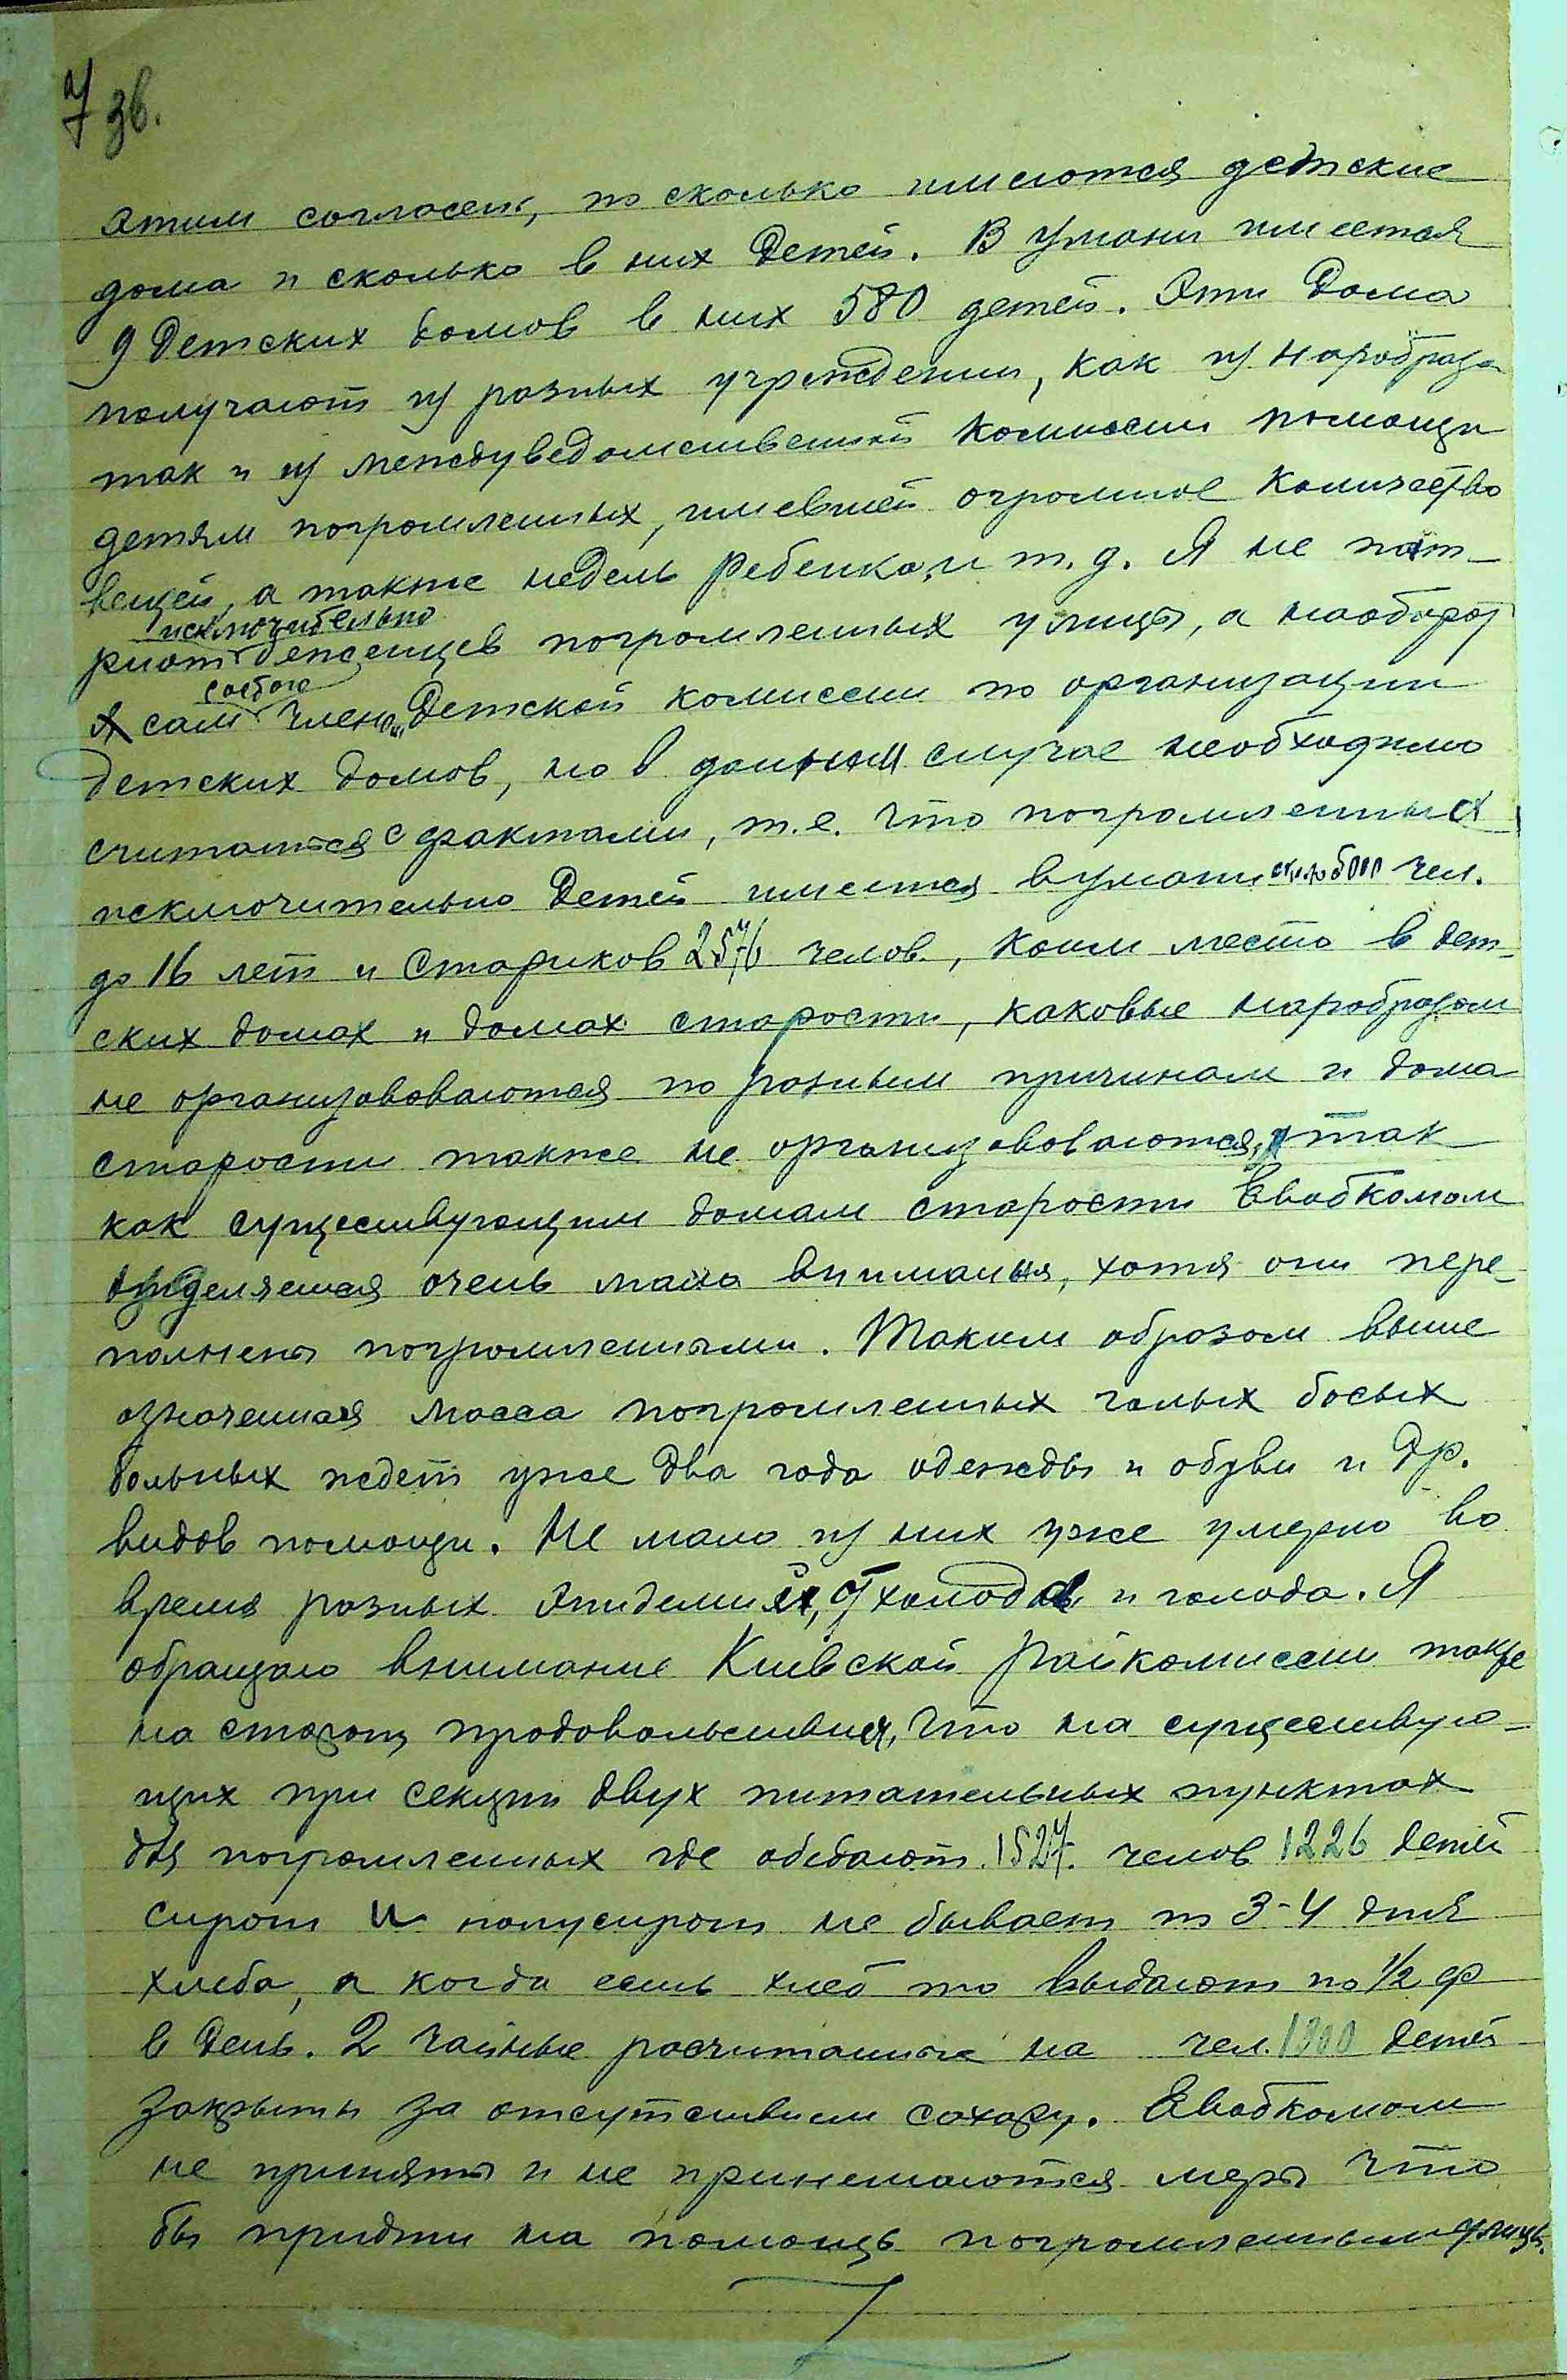 7 зв.
этим согласен, но сколько имеются детские
дома и сколько в них детей. В Умани имеется
9 детских домов в них 580 детей. Эти дома
получают из разных учреждении, как из Наробраза
так и из междуведомственной комиссии помощи
детям погромленных, имевшей огромное количество
вещей, а также недель ребенка, и т. д. Я не пат-
исключительно
риот беженцев погромленных улицы, а наоборот
особой
я сам член „Детской комиссии по организации
детских домов, но в данном случае необходимо
считаться с фактами, т.е. что погромленных
исключительно детей имеется в Умани около 5000 чел.
до 16 лет и стариков 2576 челов., коим место в дет-
ских домах и домах старости, каковые наробразом
не организововаются по разным причинам и дома
старости также не организововаются, так
как существующим домам старости Евобкомом
уделяется очень мало внимания, хотя они пере-
полнены погромленными. Таким образом выше
означенная масса погромленных голых босых
больных ждет уже два года одежды и обуви и др.
видов помощи. Не мало из них уже умерло во
время разных эпидемий, от холода и голода. Я
обращаю внимание Киевской Райкомиссии также
на сторону продовольствия, что на существую-
щих при секции двух питательных пунктах
для погромленных где обедают 1527 челов 1226 детей
сирот и полусирот не бывает по 3-4 дня
хлеба, а когда есть хлеб то выдают по 1/2 ф
в день. 2 чайные расчитанные на чел. 1300 детей
закрыты за отсутствием сахару. Евобкомом
не приняты и не принемаются меры что
бы придти на помощь погромленным улицы.